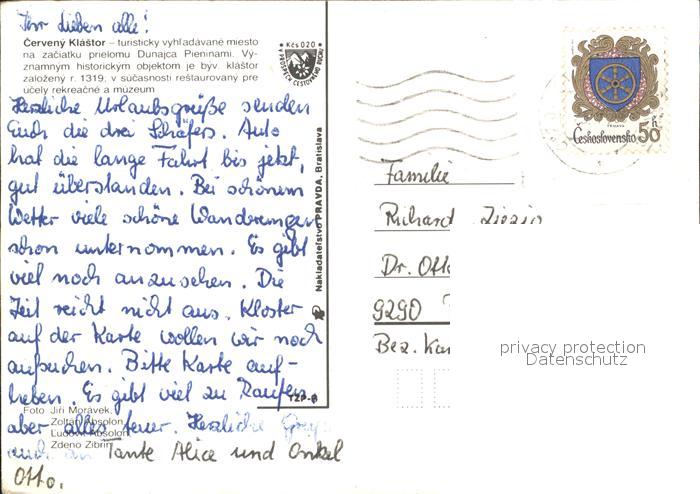 Ihr Lieben alle!
Červený Kláštor – turisticky vyhľadávané miesto
na začiatku prielomu Dunajca Pieninami. Vý-
znamným historickým objektom je býv. kláštor
založený r. 1319, v súčasnosti reštaurovaný pre
účely rekreačné a múzeum
Herzliche Urlaubsgrüße senden
Euch die drei Schäfers. Auto
hat die lange Fahrt bis jetzt,
gut überstanden. Bei schönem
Wetter viele schöne Wanderungen
schon unternommen. Es gibt
viel noch anzusehen. Die
Zeit reicht nicht aus. Kloster
auf der Karte wollen wir noch
aufsuchen. Bitte Karte auf-
heben. Es gibt viel zu kaufen
aber alles teuer. Herzliche
auch an Tante Alice und Onkel
Otto.
Foto Jiří Morávek,
Zoltán Absolon,
Ľudovít Absolon,
Zdeno Zibrín
Kčs 020
Nakladateľstvo PRAVDA, Bratislava
TZP-8
Československo 50 h
Familie
Richard
Dr. Otto
9290
Bez.
privacy protection
Datenschutz